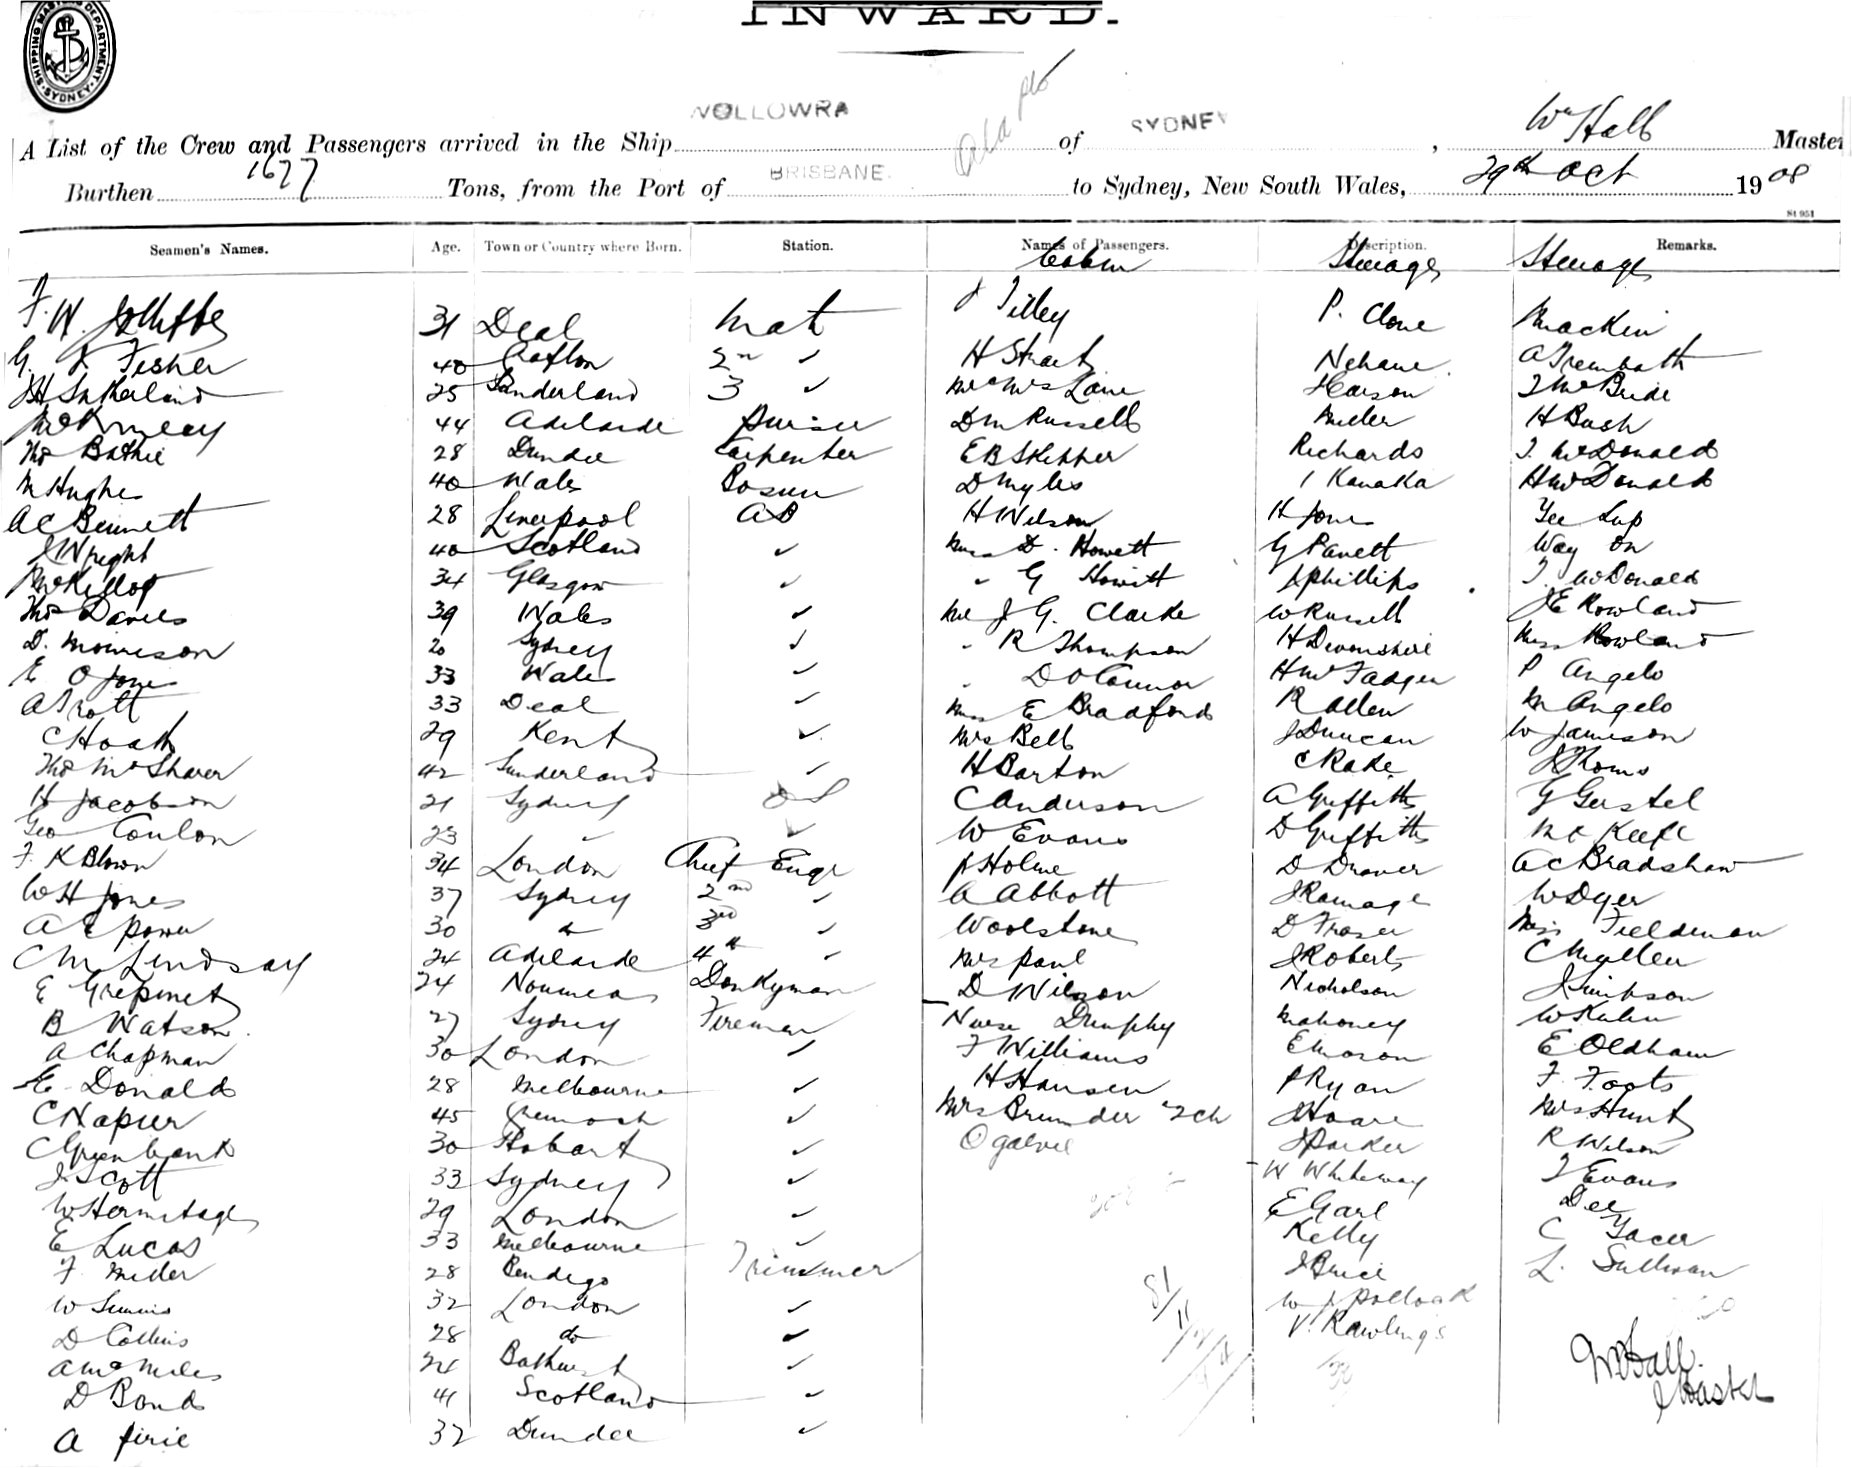 INWARD.
SHIPPING MASTER'S DEPARTMENT SYDNEY
A List of the Crew and Passengers arrived in the Ship WOLLOWRA of SYDNEY, Wm Hall Master
Burthen 1677 Tons, from the Port of BRISBANE. to Sydney, New South Wales, 29th Oct 1908
Seamen's Names. Age. Town or Country where Born. Station. Names of Passengers. Description. Remarks.
Cabin Steerage Steerage
F. W. 31 Deal Mate J Tilley P. Clone Mackin
G. K Fisher 40 Grafton 2nd ✓ H Nehane. A Trembath
J H Sutherland 25 Sunderland 3 ✓ Mr & Mrs Lane J Carson J McBride
44 Adelaide Purser D M Russell Miller H Bush
Thos Bathie 28 Dundee Carpenter E B Skepper Richards J. McDonald
M Hughes 40 Wales Bosun D Myles 1 Kanaka H McDonald
A C Bennett 28 Liverpool AB H Wilson H Jones Yee Lup
J Wright 40 Scotland ✓ Miss D. Howett G Panett Way On
McKillop 34 Glasgow ✓ " G Howitt J Phillips J. McDonald
Thos Davies 39 Wales ✓ Mr J G. Clarke W Russell J E Rowland
D. Morrison 20 Sydney ✓ " R Thompson H Devonshire Miss Rowland
E O Jones 33 Wales ✓ " D O'Connor H McFadgen P Angelo
A Trott 33 Deal ✓ Miss E Bradford R Allen M Angelo
C Hoath 29 Kent ✓ Mrs Bell J Duncan W Jamieson
Thos McSharer 42 Sunderland ✓ H Barton C Rake J Thoms
H Jacobson 21 Sydney OS C Anderson A Griffiths G Gerstel
Geo Coulon 23 " ✓ W Evans D Griffiths M O Keefe
F K Blown 34 London Chief Engr J Holme D Draver A C Bradshaw
W H Jones 37 Sydney 2nd ✓ A Abbott J Ramage W Dyer
A E Power 30 " 3rd ✓ Woolstone D Fraser Miss Fieldeman
C M Lindsay 24 Adelaide 4th ✓ Mrs Paul J Roberts C Mullen
E Grepinet 24 Noumea Donkyman D Wilson Nicholson J Simpson
B Watson. 27 Sydney Fireman Nurse Dunphy Mahoney W Kuhn
A Chapman 30 London ✓ F Williams E Mason E Oldham
E Donald 28 Melbourne ✓ H Hansen P Ryan F. Foots
C Napier 45 ✓ Mrs Brunder & 2 ch J Hoare Mrs Hunt
C Greenbank 30 Hobart ✓ Ogalvie J Parker R Wilson
J Scott 33 Sydney ✓ W Whiteway J Evans
W Hermitage 29 London ✓ E Garl Dee
E Lucas 33 Melbourne ✓ Kelly C
F Miller 28 Bendigo Trimmer J Bruce L. Sullivan
W Simms 32 London ✓ W J Pollock
D Collins 28 do ✓ V. Rawlings
A McMiles 24 Bathurst ✓
D Bond 41 Scotland ✓
A Pirie 32 Dundee ✓
W Hall.
Master